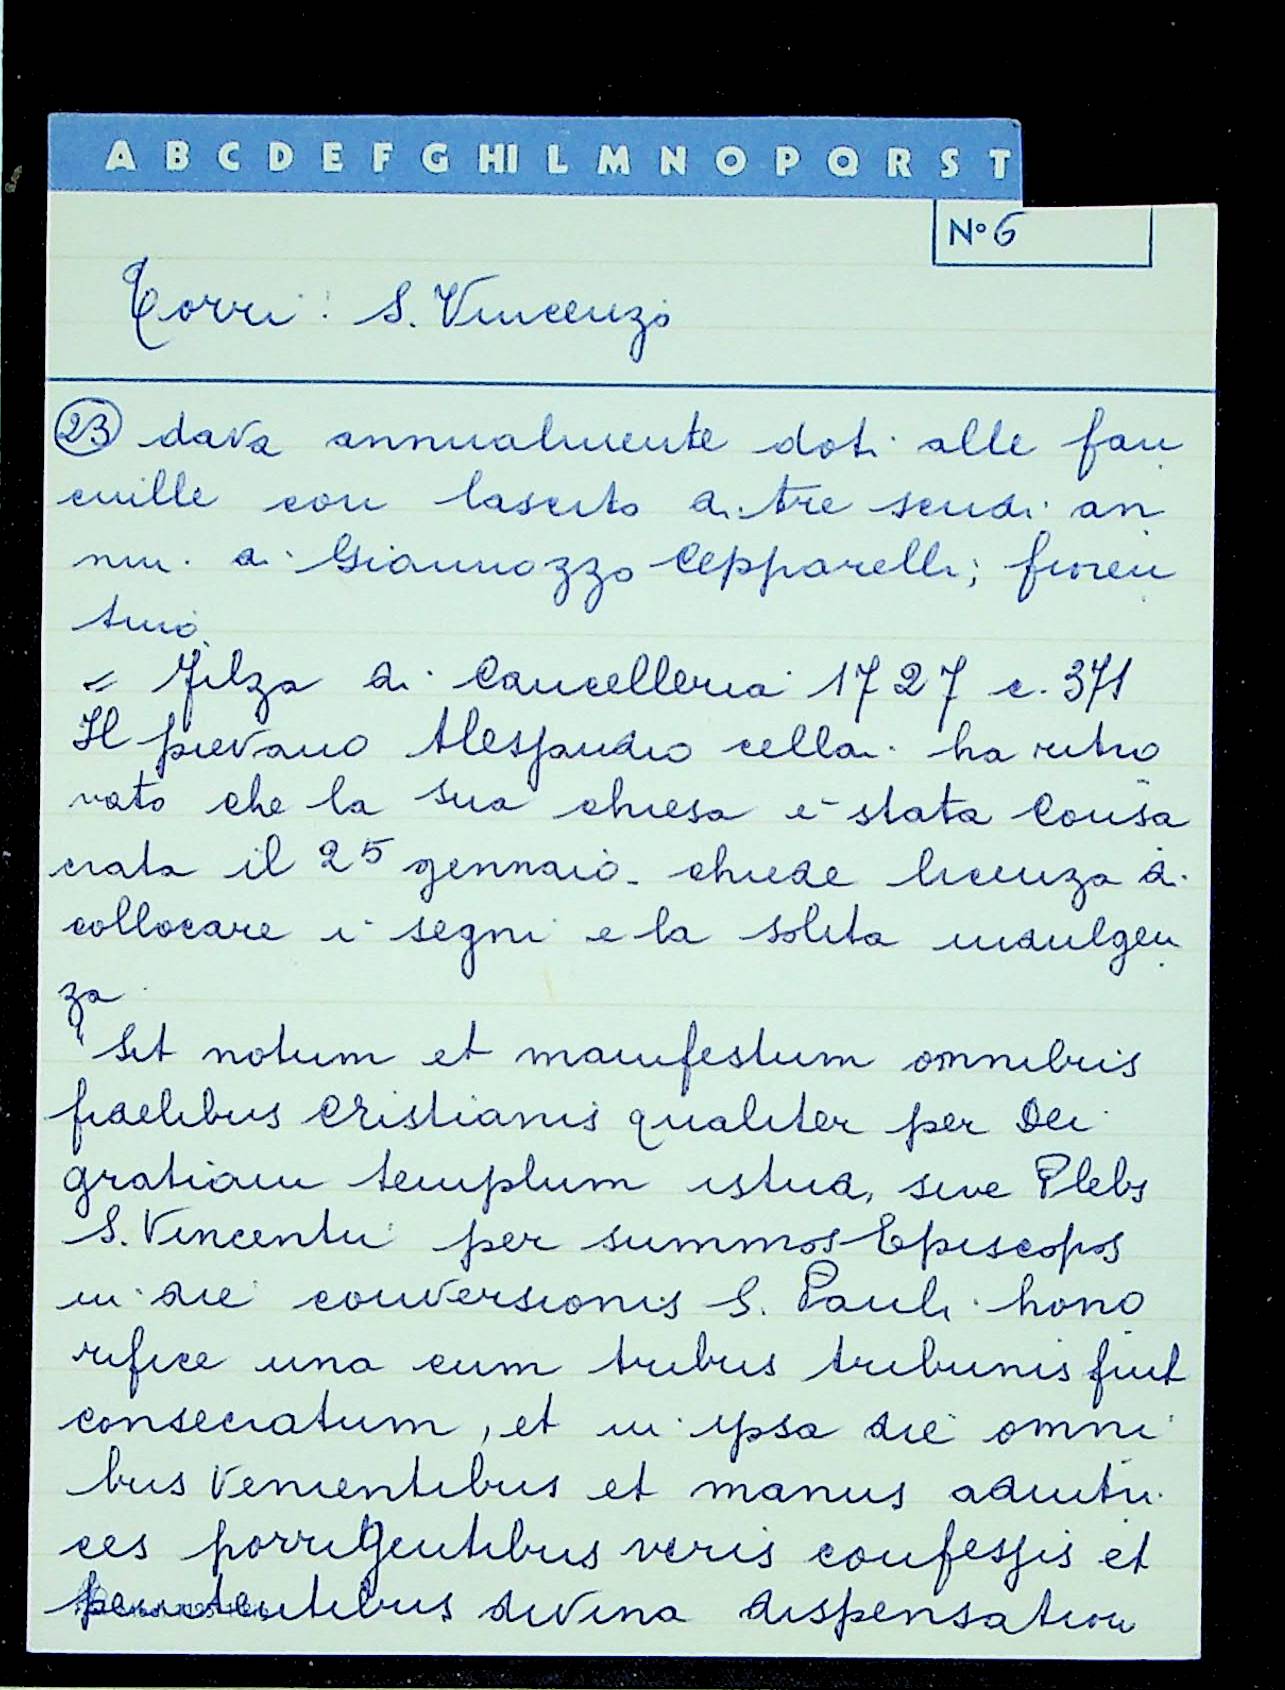 A B C D E F G HI L M N O P Q R S T
N° 6
Torri: S. Vincenzo
23 dava annualmente doti alle fan
ciulle con lascito di tre scudi an
nui di Giannozzo Cepparelli; fioren
tino.
= Filza di Cancelleria 1727 c. 371
Il pievano Alessandro cellai ha ritro
vato che la sua chiesa è stata consa
crata il 25 gennaio - chiede licenza di
collocare i segni e la solita indulgen
za
"Sit notum et manifestum omnibus
fidelibus Cristianis qualiter per Dei
gratiam templum istud, sive Plebs
S. Vincentii per summos Episcopos
in die conversionis S. Pauli hono
rifice una cum tribus tribunis fuit
consecratum, et in ipsa die omni
bus venientibus et manus adiutri
ces porrigentibus veris confessis et
penitentibus divina dispensation